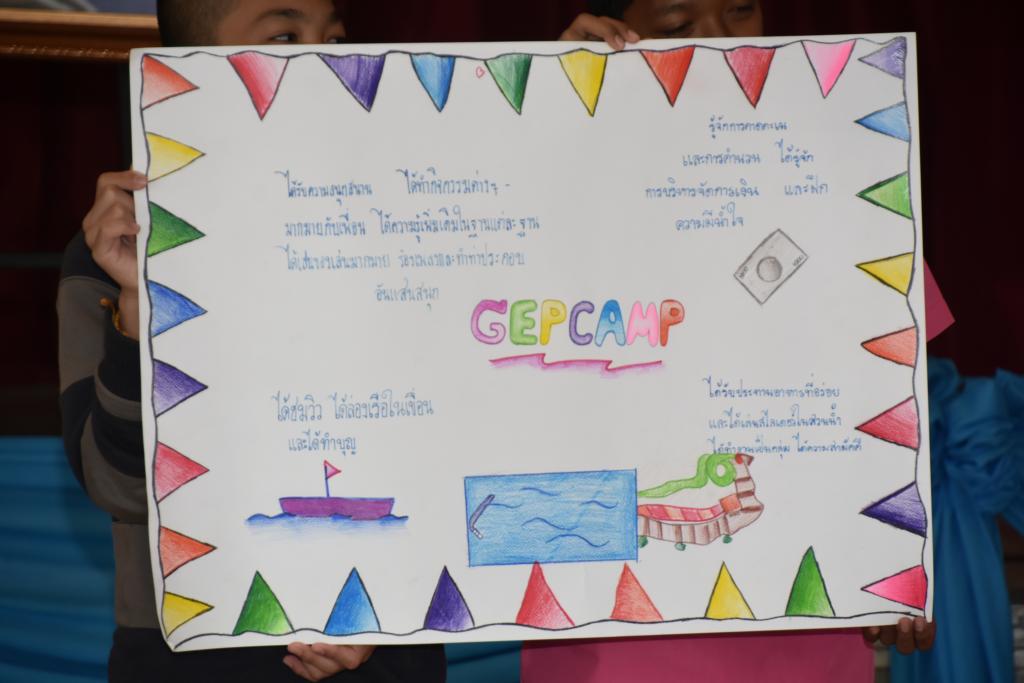 ได้รับความสนุกสนาน ได้ทำกิจกรรมต่างๆ -
มากมายกับเพื่อน ได้ความรู้เพิ่มเติมในฐานแต่ละฐาน
ได้เล่นของเล่นมากมาย ร้องเพลงและทำท่าประกอบ
อันแสนสนุก
รู้จักการคาดคะเน
และการคำนวน ได้รู้จัก
การบริหารจัดการเงิน และฝึก
ความมีน้ำใจ
GEPCAMP
ได้ชมวิว ได้ล่องเรือในเขื่อน
และได้ทำบุญ
ได้รับประทานอาหารที่อร่อย
และได้เล่นสไลเดอร์ในสวนน้ำ
ได้ทำงานเป็นกลุ่ม ได้ความสามัคคี